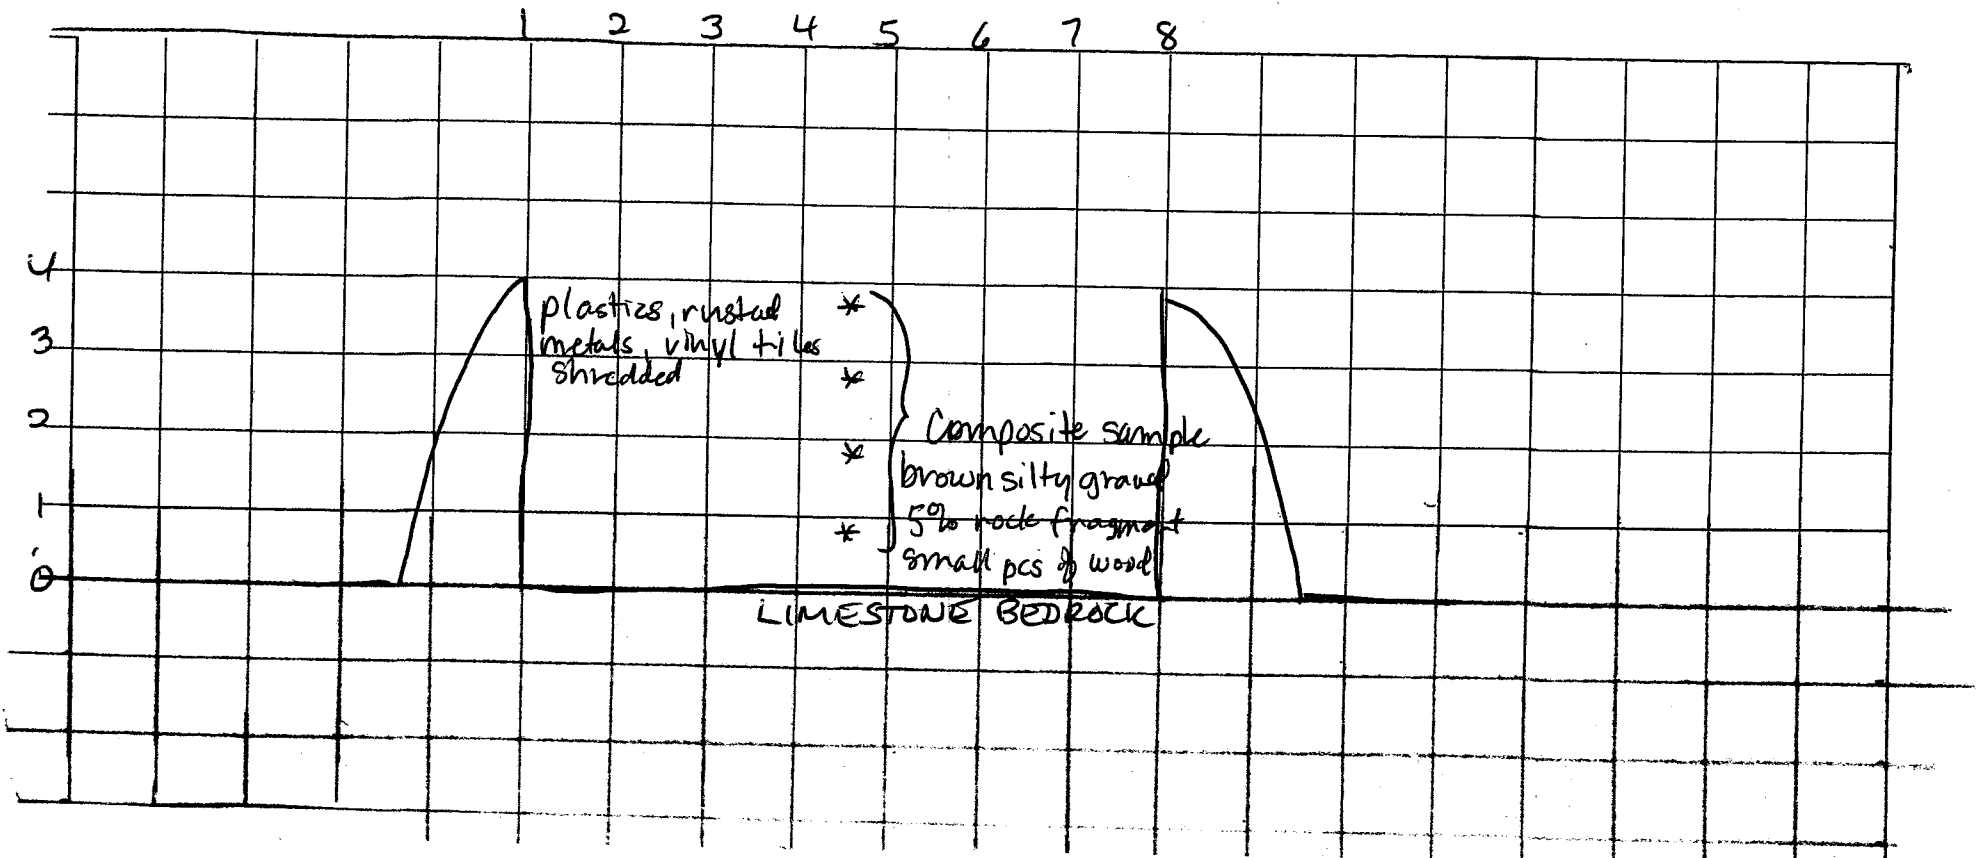 1 2 3 4 5 6 7 8
4
plastics, rusted
metals, vinyl tiles
3
shredded
2
Composite sample
brown silty gravel
1
5% rock fragment
small pcs of wood
0
LIMESTONE BEDROCK